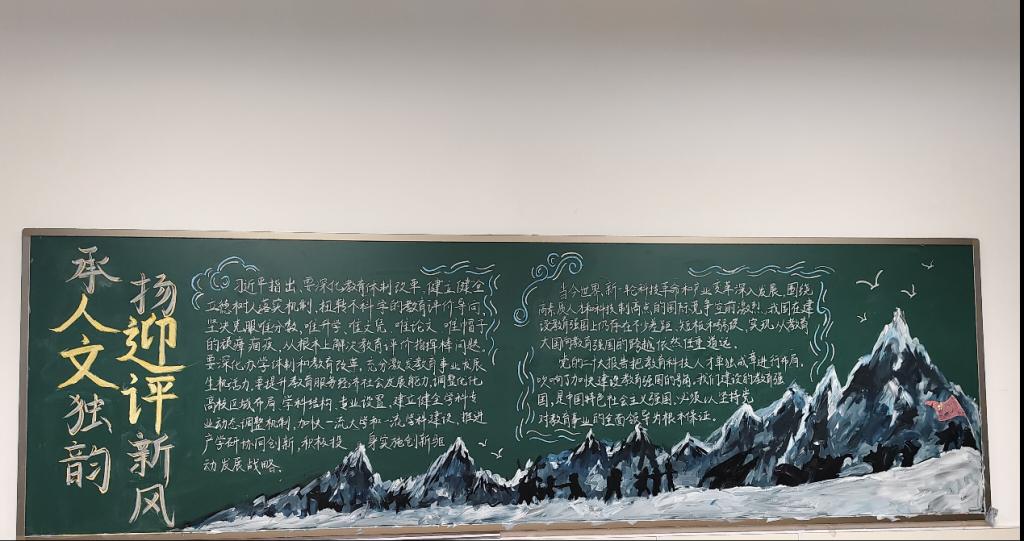 承人文独韵
扬迎评新风
习近平指出,要深化教育体制改革,健全
立德树人落实机制,扭转不科学的教育评价导向,
坚决克服唯分数、唯升学、唯文凭、唯论文、唯帽子
的顽瘴痼疾,从根本上解决教育评价指挥棒问题。
要深化办学体制和教育改革,充分激发教育事业发展
生机活力,要提升教育服务经济社会发展能力,调整优化
高校区域布局、学科结构、专业设置,建立健全学科专
业动态调整机制,加快一流大学和一流学科建设,推进
产学研协同创新,积极投 身实施创新驱
动发展战略。
当今世界,新一轮科技革命和产业变革深入发展,围绕
高素质人才和科技制高点的国际竞争空前激烈,我国在建
设教育强国上仍存在不少差距、短板和弱项,实现从教育
大国向教育强国的跨越依然任重道远。
党的二十大报告把教育科技人才单独成章进行布局,
吹响了加快建设教育强国的号角,我们建设的教育强
国,是中国特色社会主义强国,必须以坚持党
对教育事业的全面领导为根本保证。